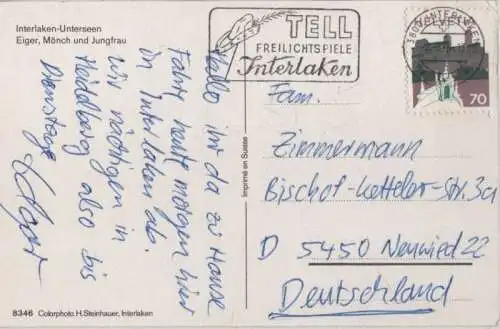 Interlaken-Unterseen
Eiger, Mönch und Jungfrau
TELL
FREILICHTSPIELE
Interlaken
3800 INTERLAKEN
70
Hallo ihr da zu Hause
Fahre heute morgen hier
in Interlaken ab.
Wir nächtigen in
Heidelberg also bis
Dienstag
Edgar
Imprimé en Suisse
Fam.
Zimmermann
Bischof-Ketteler-Str. 3a
D 5450 Neuwied 22
Deutschland
8346 Colorphoto.H.Steinhauer, Interlaken